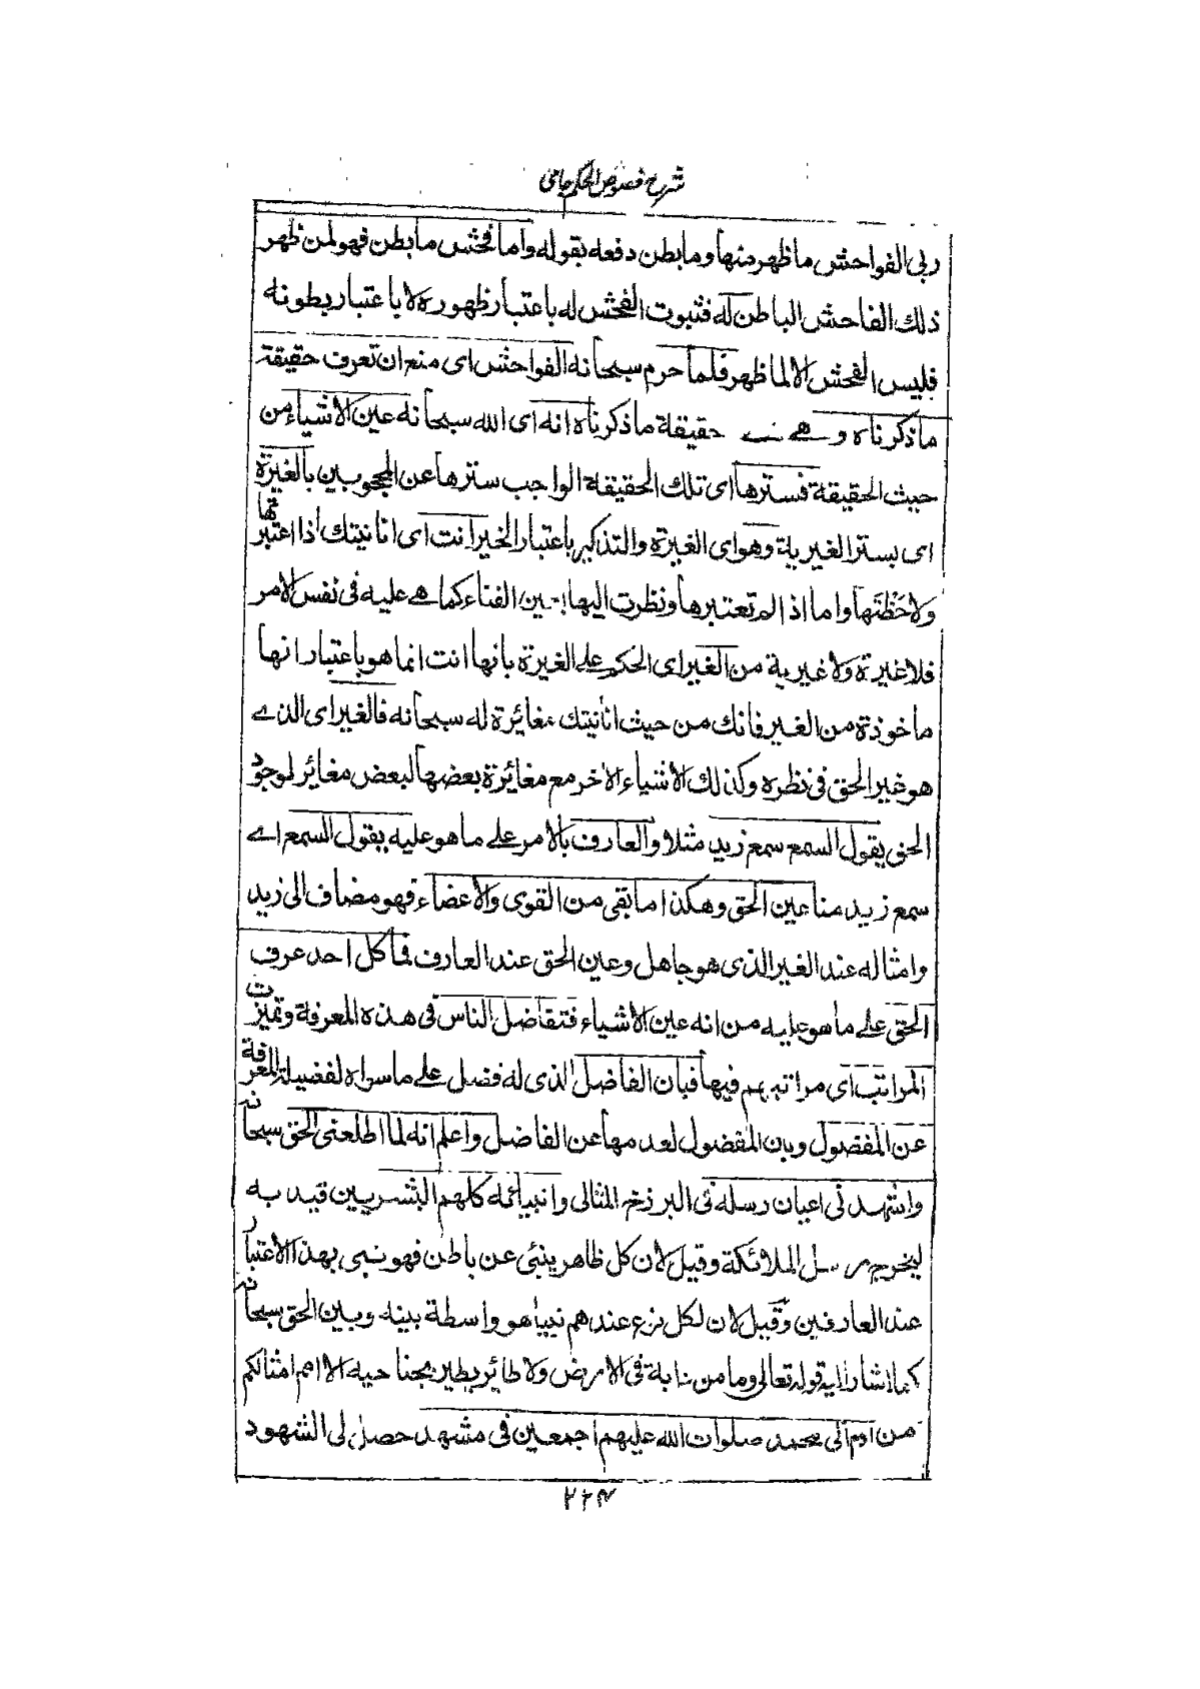 شرح فصوص الحكم جامی
ربى الفواحش ما ظهر منها وما بطن دفعه بقوله واما فحش ما بطن فهو لمن ظهر
ذلك الفاحش الباطن له فثبوت الفحش له باعتبار ظهوره لا باعتبار بطونه
فليس الفحش الا لما ظهر فلما حرم سبحانه الفواحش اى منع ان تعرف حقيقة
ما ذكرناه وهے حقيقة ما ذكرناه انه اى الله سبحانه عين الاشياء من
حيث الحقيقة فسترها اى تلك الحقيقة الواجب سترها عن المحجوبين بالغيرة
اى بستر الغيرية وهو اى الغيرة والتذكير باعتبار الخبر انت اى انانيتك اذا اعتبرتها
ولاحَظْتَها واما اذا لم تعتبرها ونظرت اليها بعين الفناء كما هے عليه فى نفس الامر
فلا غيرة ولا غيرية من الغير اى الحكم علے الغيرة بانها انت انما هو باعتبار انها
ماخوذة من الغير فانك من حيث انانيتك مغائرة له سبحانه فالغير اى الذے
هو غير الحق فى نظره وكذلك الاشياء الاخر مع مغائرة بعضها لبعض مغائر لوجود
الحق يقول السمع سمع زيد مثلا والعارف بالامر علے ما هو عليه يقول السمع اے
سمع زيد مثلا عين الحق وهكذا ما بقى من القوى والاعضاء فهو مضاف الى زيد
وامثاله عند الغير الذى هو جاهل وعين الحق عند العارف فما كل احد عرف
الحق علے ما هو عليه من انه عين الاشياء فتفاضل الناس فى هذه المعرفة وتميزت
المراتب اى مراتبهم فيها فبان الفاضل الذى له فضل علے ما سواه لفضيلة المعرفة
عن المفضول وبان المفضول لعدمها عن الفاضل واعلم انه لما اطلعنى الحق سبحانه
واشهدنى اعيان رسله فى البرزخ المثالى وانبيائه كلهم البشريين قيد به
ليخرج رسل الملائكة وقيل لان كل ظاهر ينبئ عن باطن فهو نبى بهذا الاعتبار
عند العارفين وقيل لان لكل نوع عندهم نبيا هو واسطة بينه وبين الحق سبحانه
كما اشار اليه قوله تعالى وما من دابة فى الارض ولا طائر يطير بجناحيه الا امم امثالكم
من آدم الى محمد صلوات الله عليهم اجمعين فى مشهد حصل لى الشهود